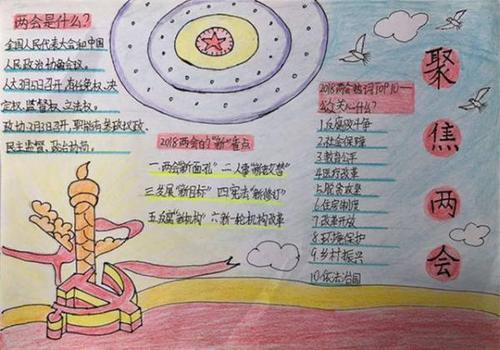 两会是什么？
全国人民代表大会和中国
人民政治协商会议。
人大3月5日召开，有任免权、决
定权、监督权、立法权。
政协3月3日召开，职能有参政议政、
民主监督、政治协商。
2018两会的"新"看点
一.两会"新面孔" 二.人事"新老交替"
三.发展"新目标" 四.宪法"新修订"
五.反腐"新机构" 六.新一轮机构改革
2018两会热词TOP10——
公众关心什么？
1.反腐败斗争
2.社会保障
3.教育公平
4.医疗改革
5.脱贫攻坚
6.住房制度
7.改革开放
8.环境保护
9.乡村振兴
10.依法治国
聚焦两会